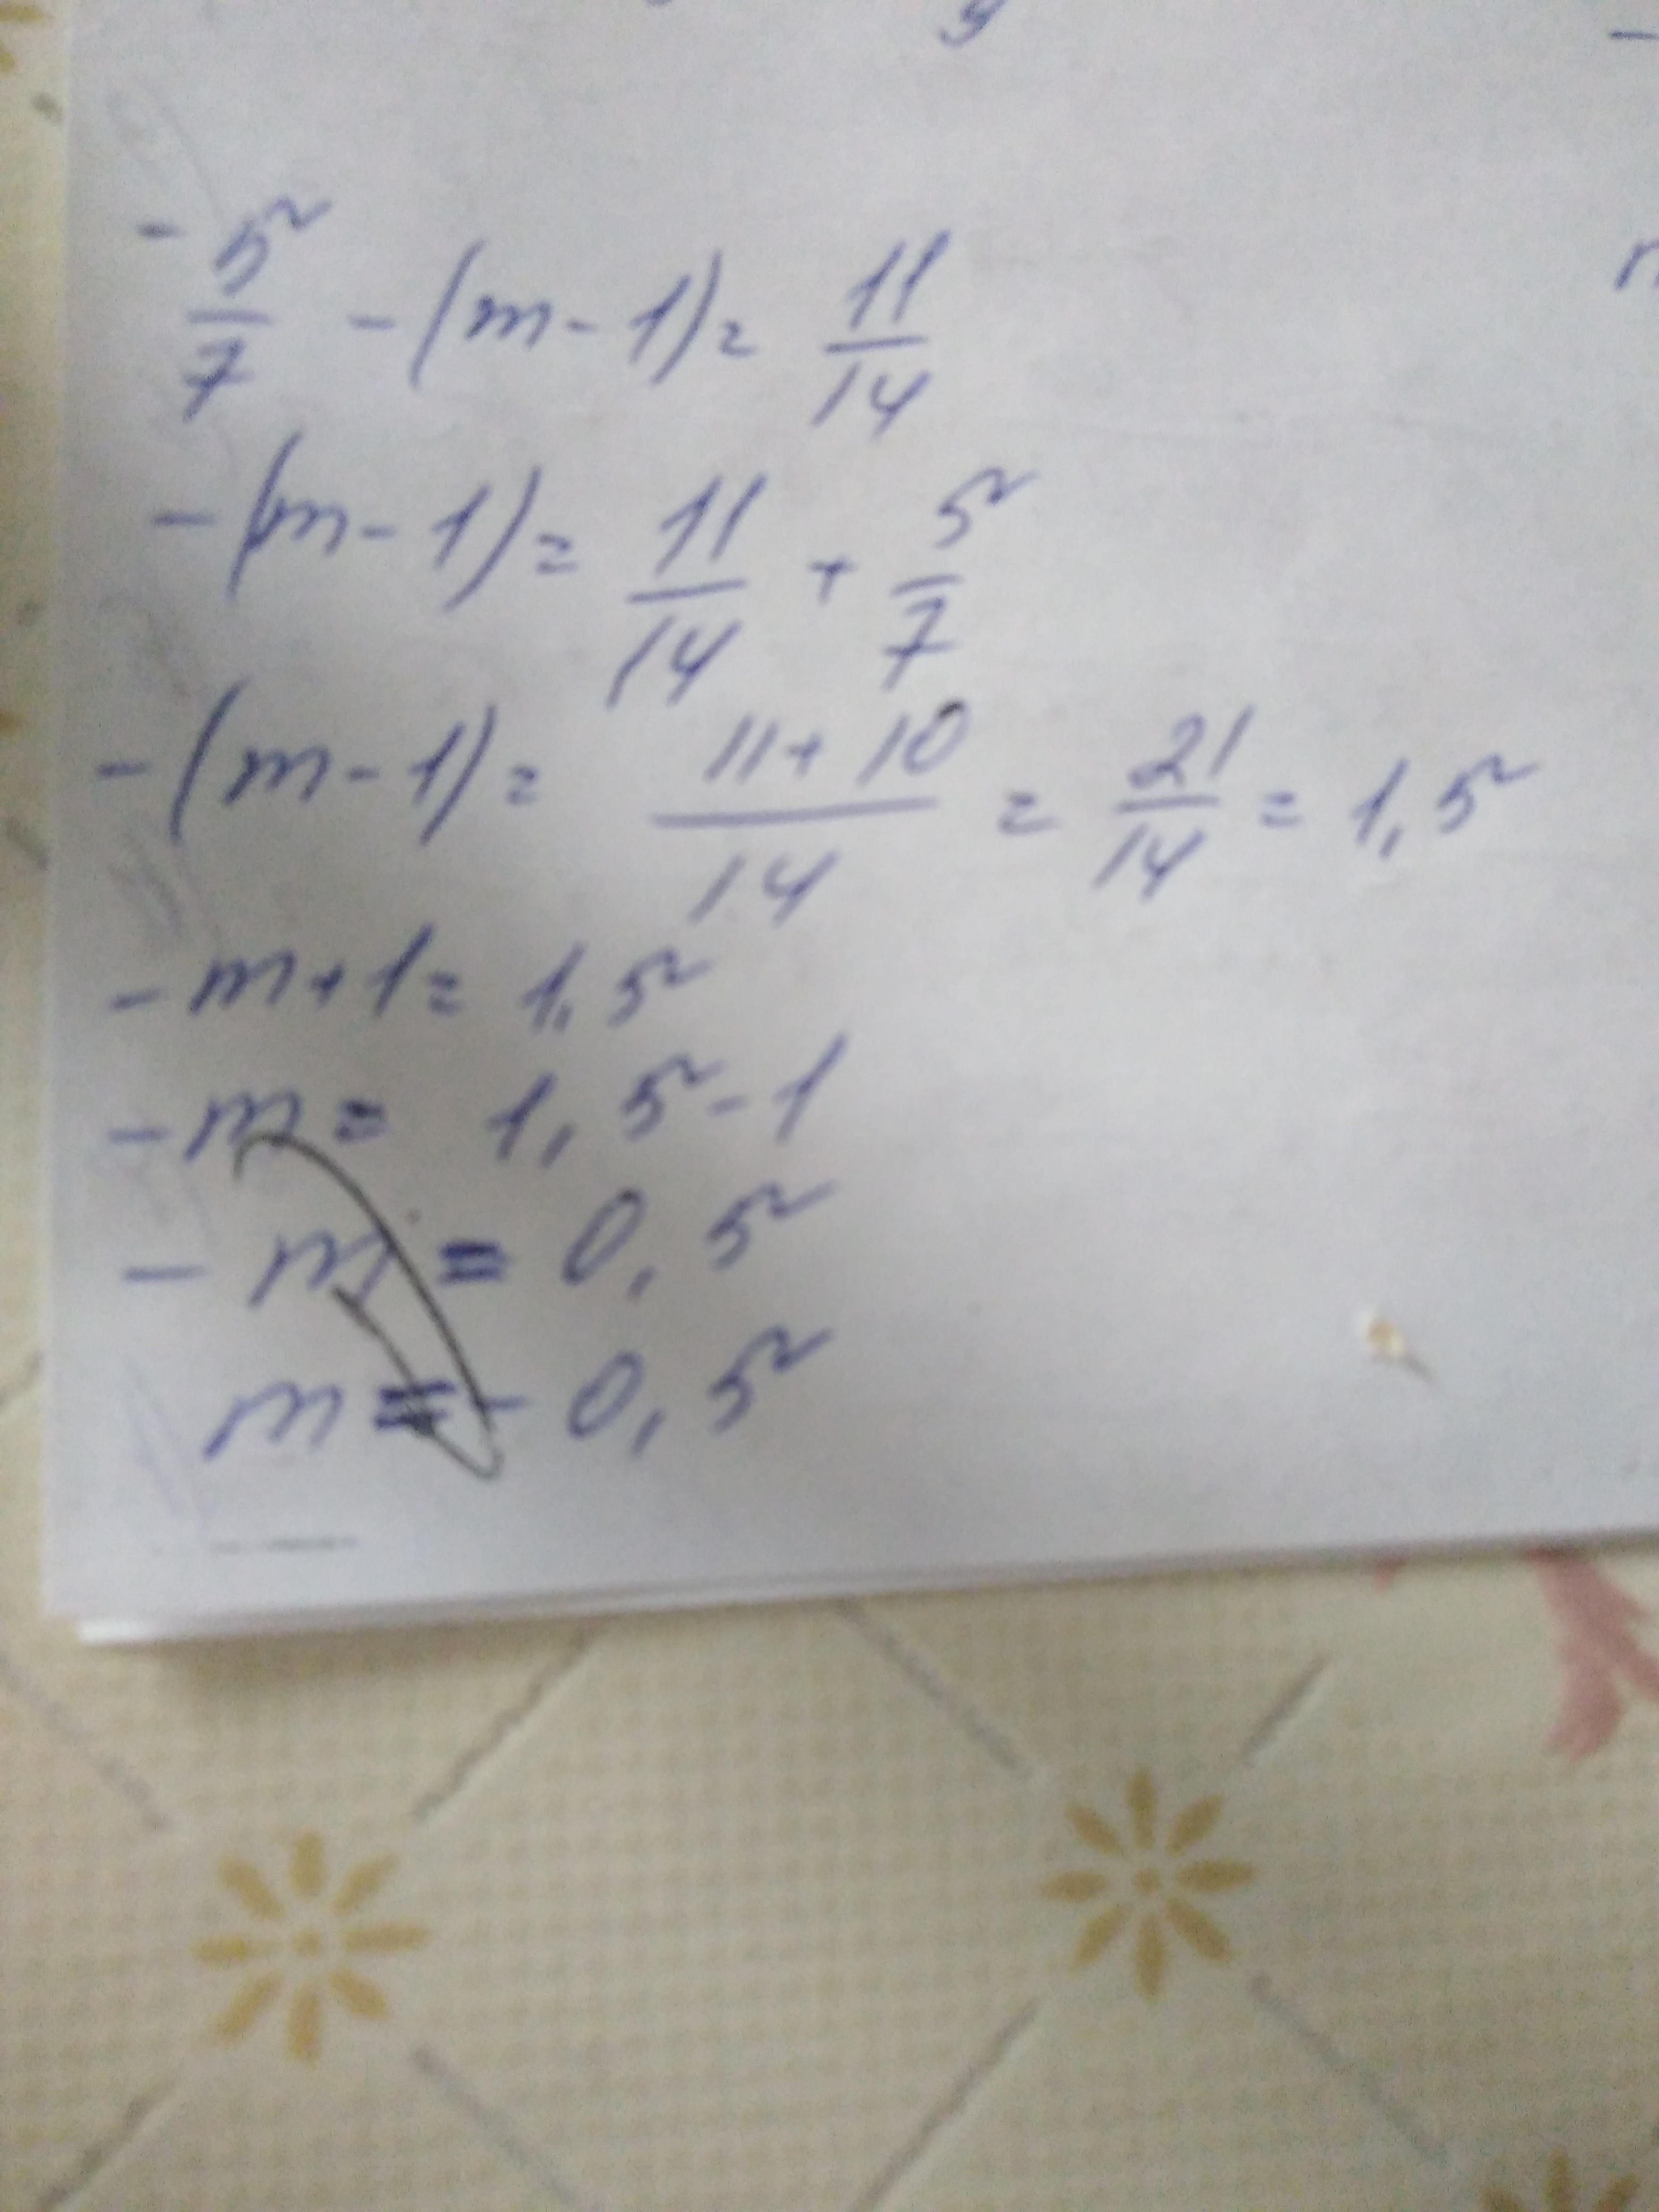 - 5/7 - (m - 1) = 11/14
- (m - 1) = 11/14 + 5/7
- (m - 1) = (11 + 10)/14 = 21/14 = 1,5
- m + 1 = 1,5
- m = 1,5 - 1
- m = 0,5
m = - 0,5